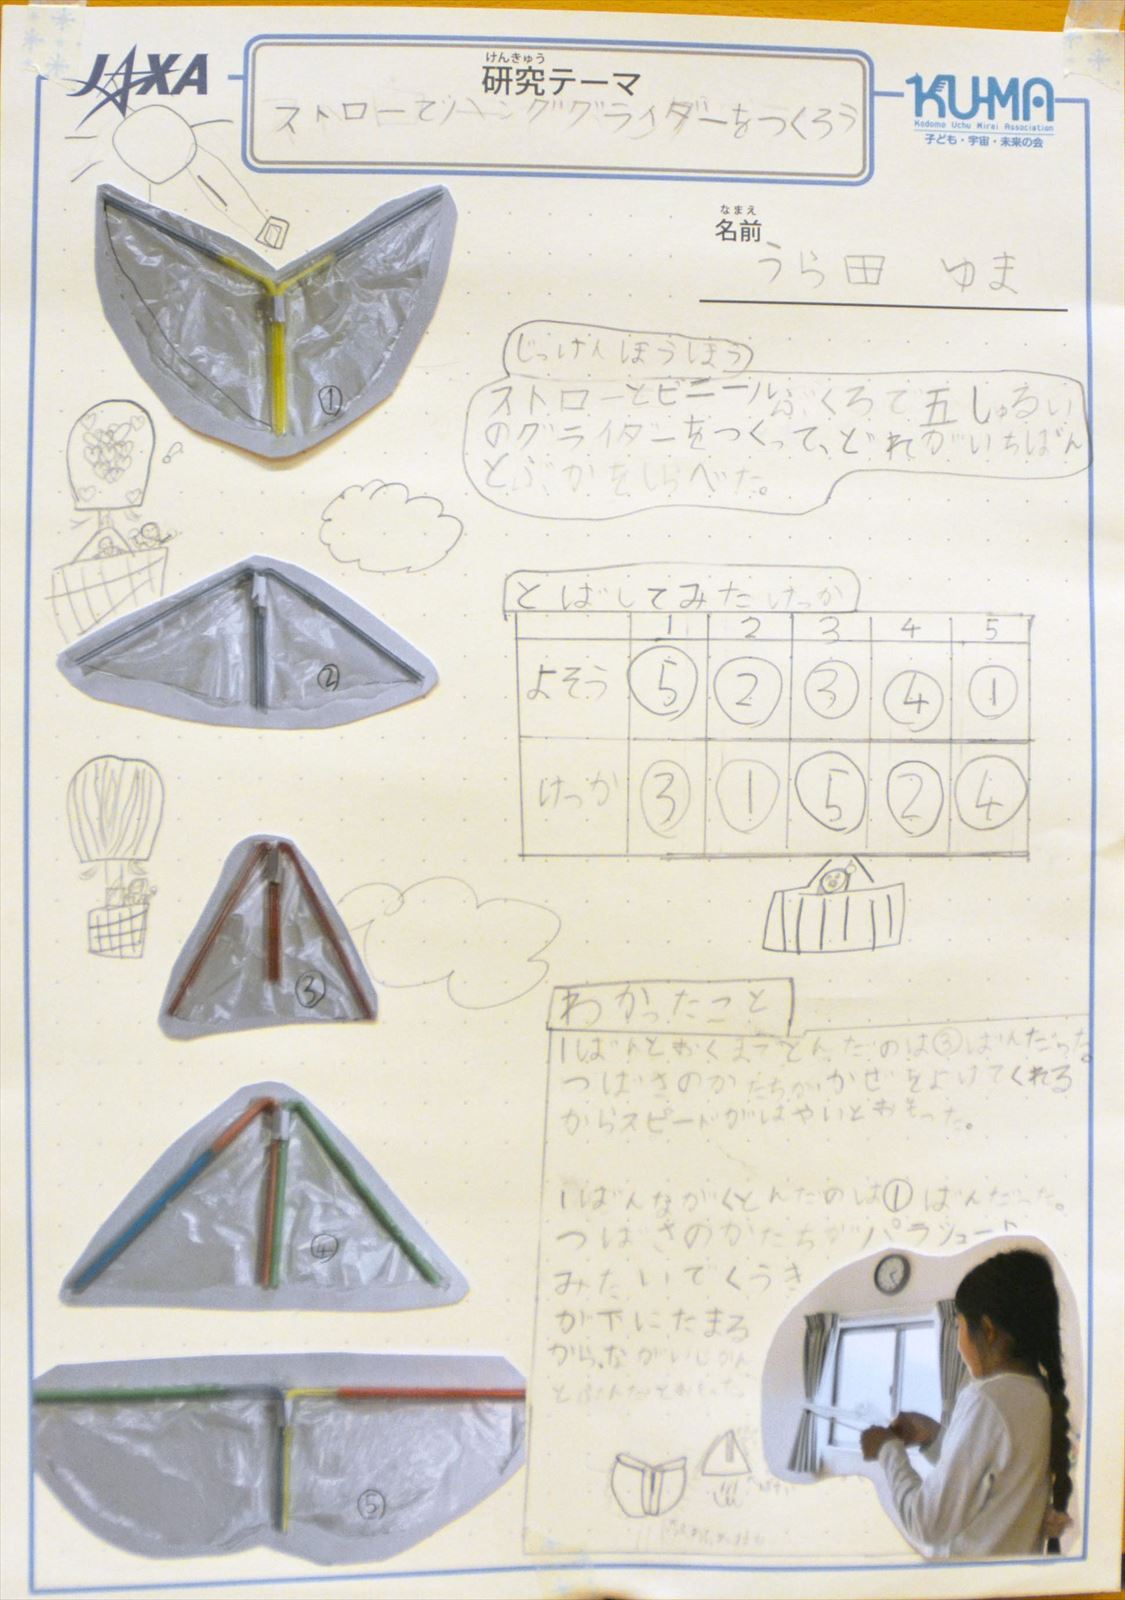 JAXA
けんきゅう
研究テーマ
ストローでハンググライダーをつくろう
KU-MA
Kodomo Uchu Mirai Association
子ども・宇宙・未来の会
なまえ
名前
うら田 ゆま
じっけんほうほう
ストローとビニールぶくろで五しゅるい
のグライダーをつくって、どれがいちばん
とぶかをしらべた。
とばしてみたけっか
1 2 3 4 5
よそう ⑤ ② ③ ④ ①
けっか ③ ① ⑤ ② ④
①
②
③
④
⑤
わかったこと
1ばんとおくまでとんだのは③ばんだった。
つばさのかたちがかぜをよけてくれる
からスピードがはやいとおもった。
1ばんながくとんだのは①ばんだった。
つばさのかたちがパラシュート
みたいでくうき
が下にたまる
から、ながいじかん
とぶんだとおもった。